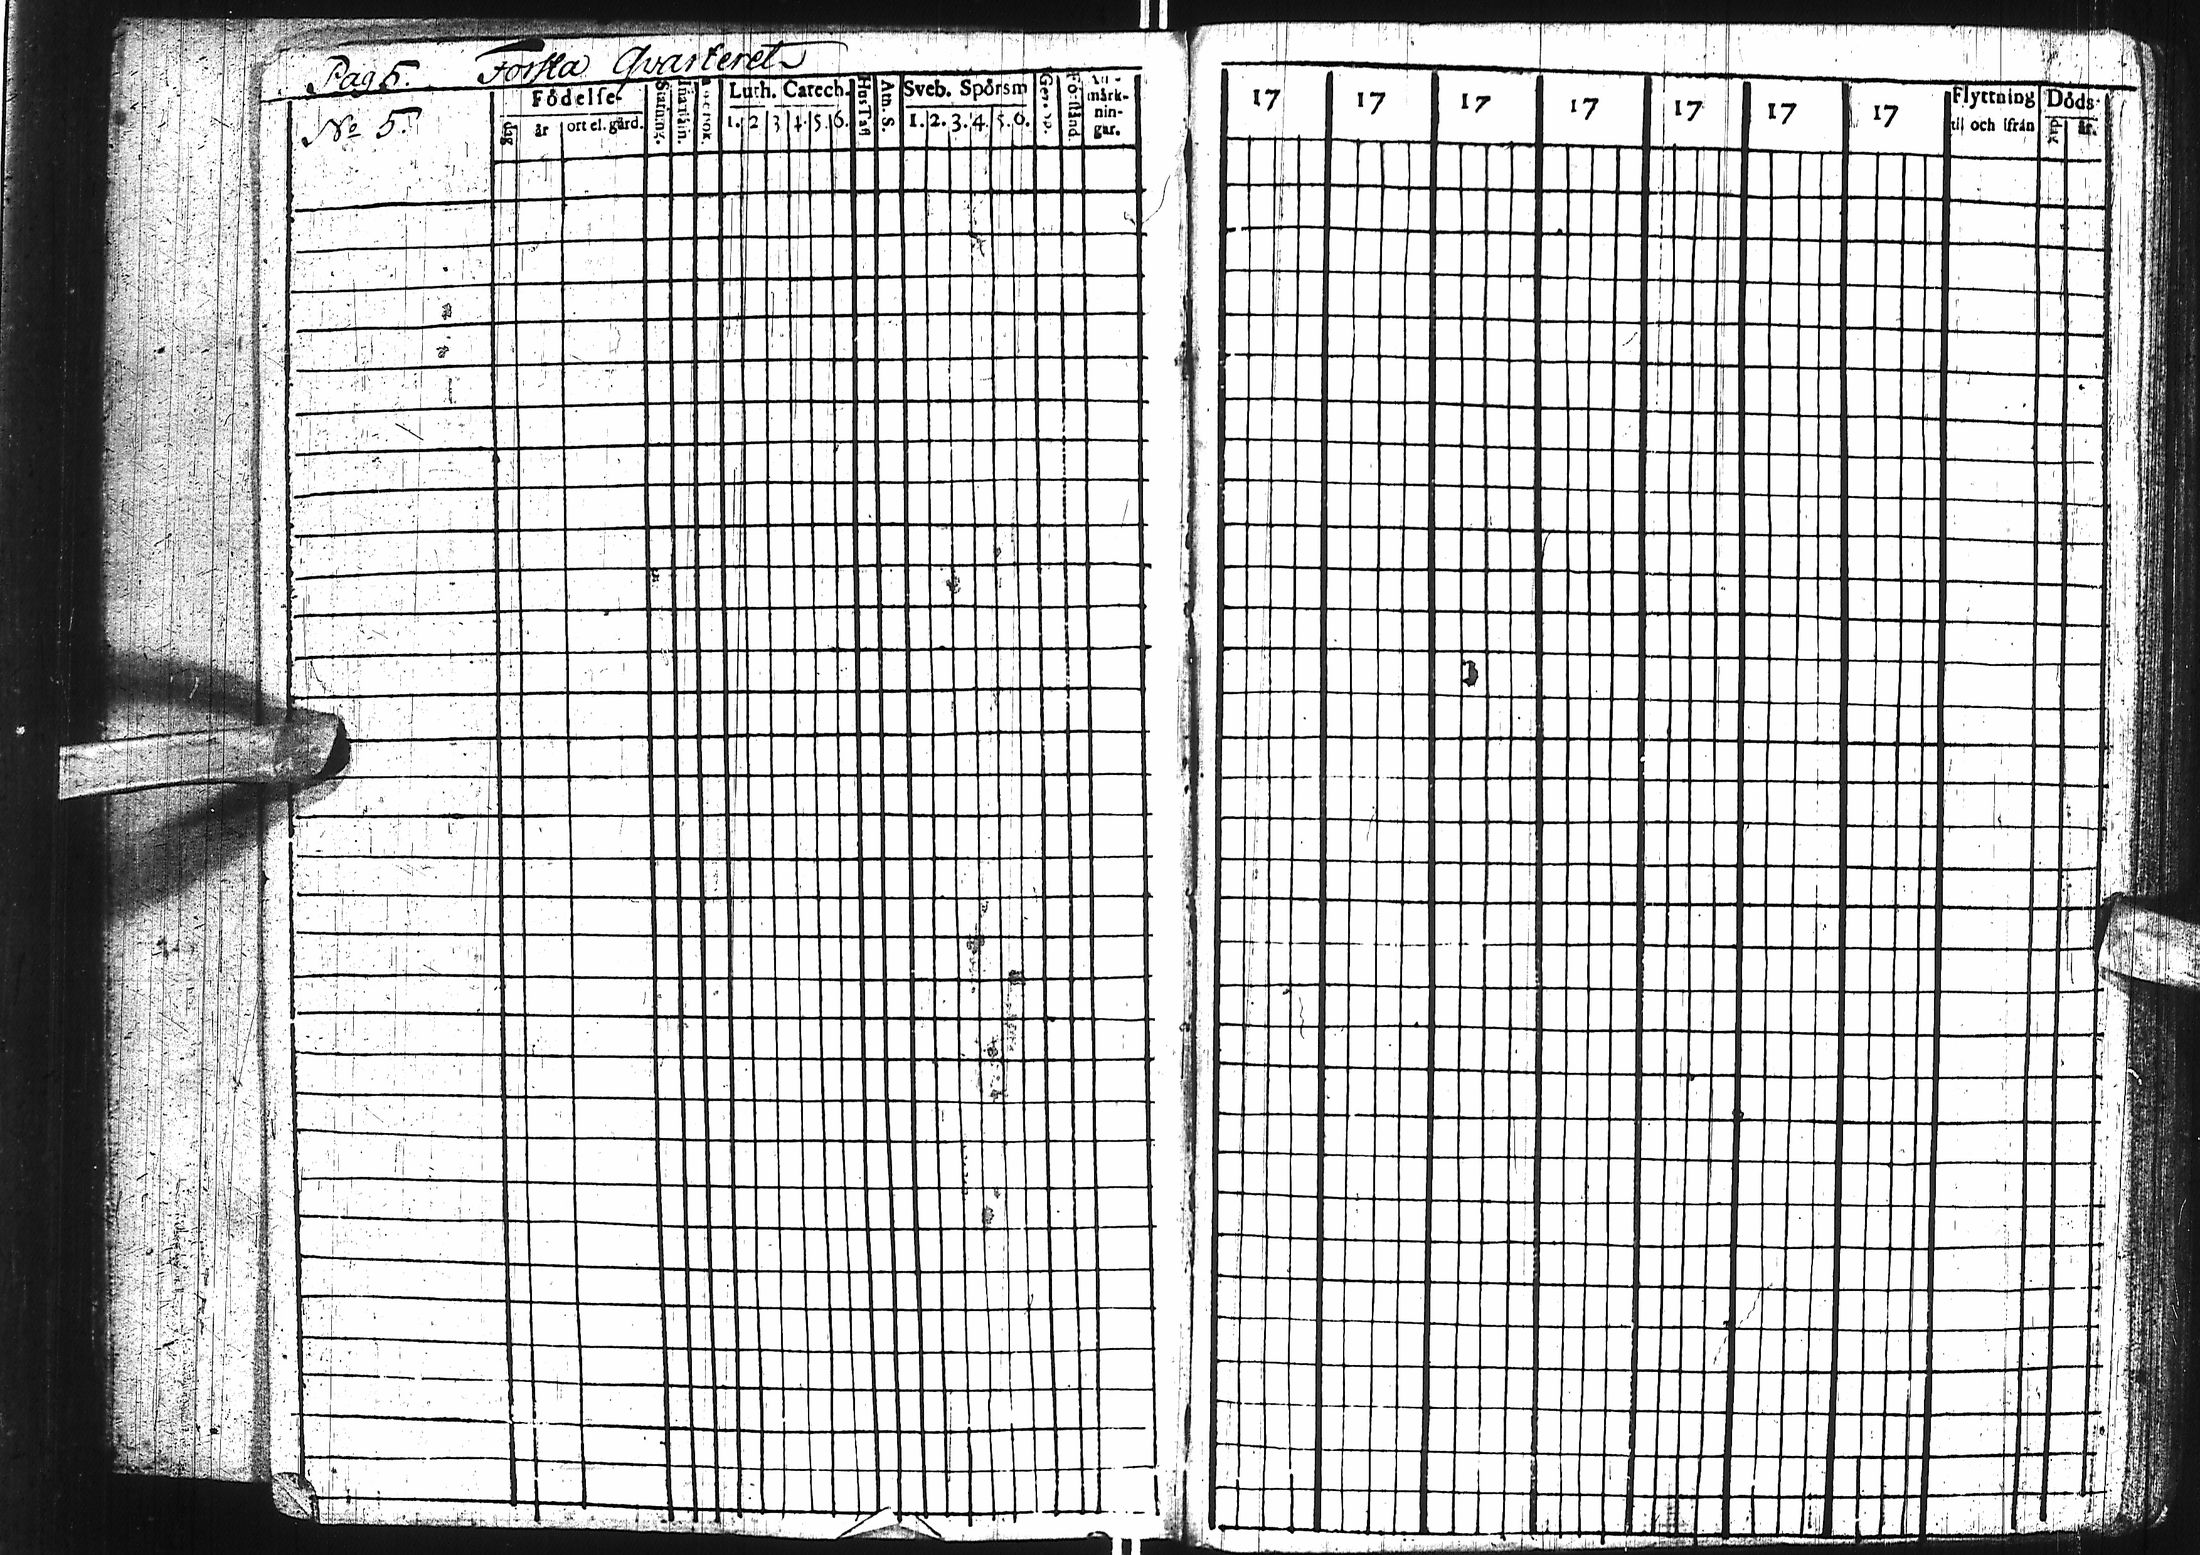 Pag 5. Forsta Qvarteret
No 5.
Födelse-
dag
år
ort el. gård.
Stafning.
Luth. Catech.
1. 2 3 4. 5. 6.
Hus Tafl
Ath. S.
Sveb. Spörsm
1. 2. 3. 4. 5. 6.
Förstånd.
An-
märk-
nin-
gar.
17 17 17 17 17 17 17
Flyttning
til och ifrån
Döds-
dag
år.